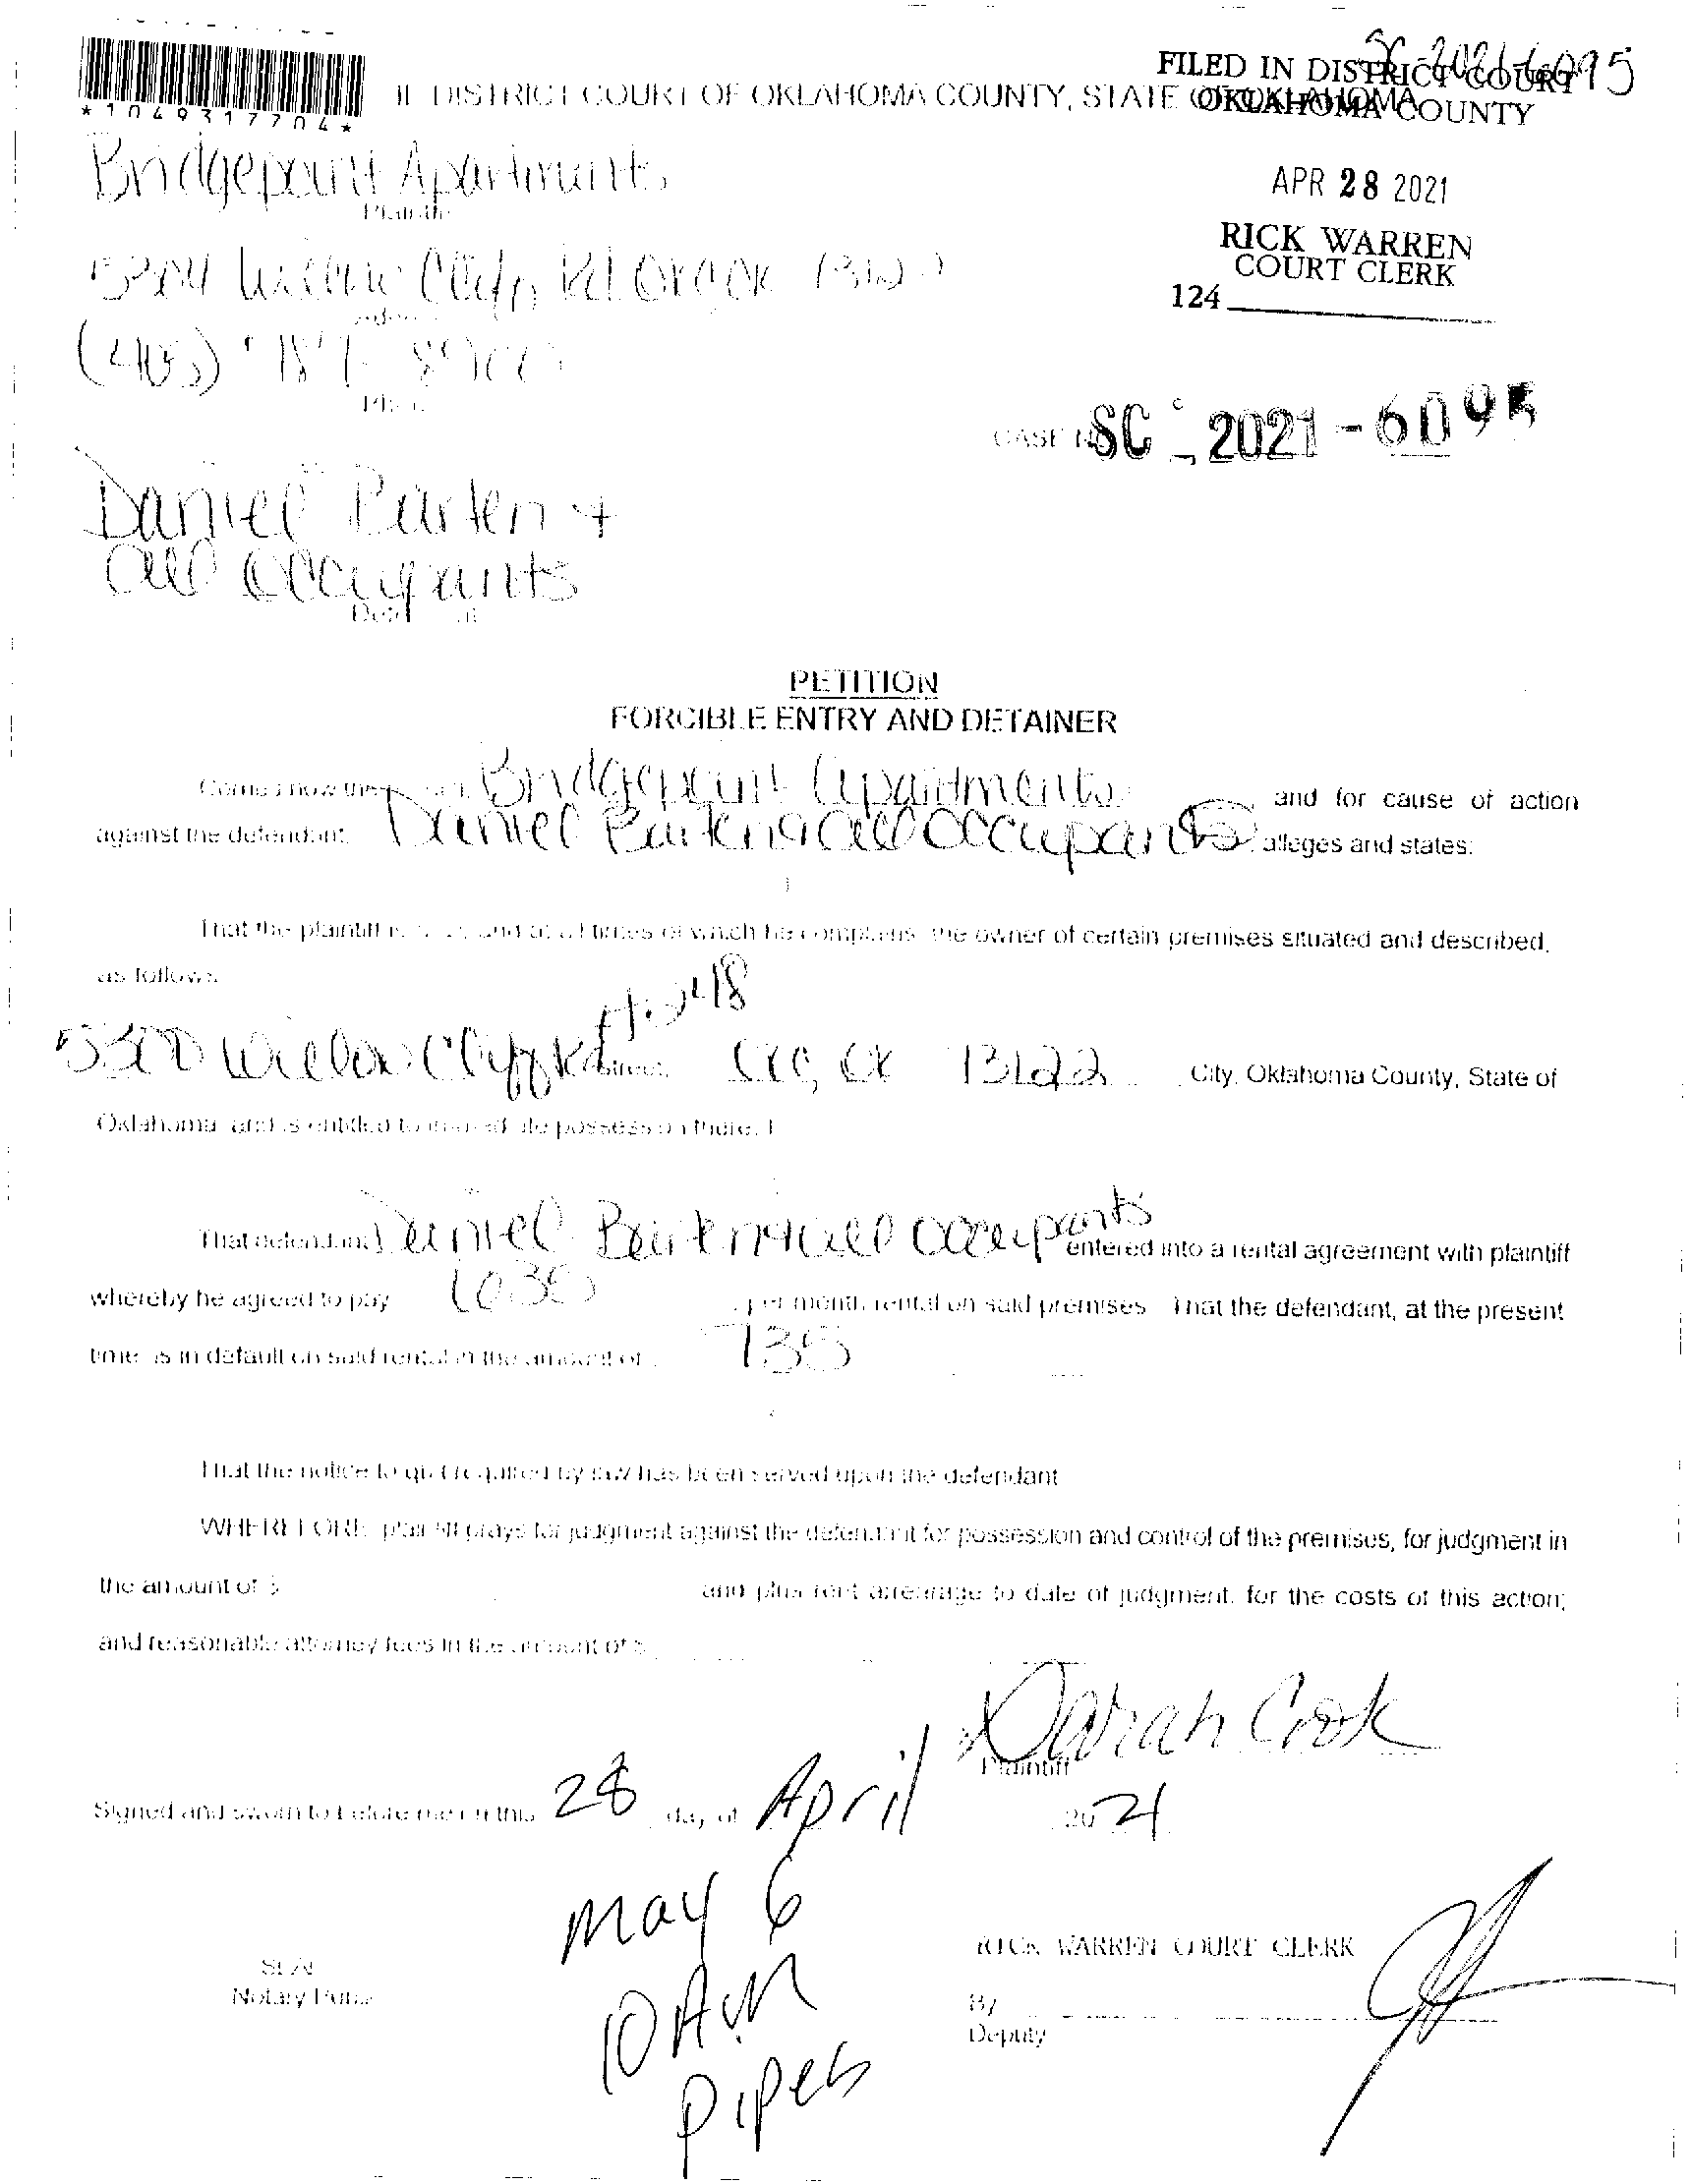 SC-2021-6095
FILED IN DISTRICT COURT
OKLAHOMA COUNTY
DISTRICT COURT OF OKLAHOMA COUNTY, STATE OF OKLAHOMA
*1049317704*
Bridgepoint Apartments
Plaintiff
APR 28 2021
RICK WARREN
COURT CLERK
124
Rd
(405)
CASE NO SC - 2021-6095
Daniel +
all occupants
PETITION
FORCIBLE ENTRY AND DETAINER
Comes now the Bridgepoint Apartments and for cause of action
against the defendant, Daniel all occupants alleges and states:
That the plaintiff is and at all times of which he complains, the owner of certain premises situated and described,
as follows
248
Willow Cliff Rd Street, City, Oklahoma County, State of
Oklahoma and is entitled to immediate possession thereof
That defendant Daniel all occupants entered into a rental agreement with plaintiff
whereby he agreed to pay per month rental on said premises That the defendant, at the present
time is in default on said rental in the amount of 735
That the notice to quit required by law has been served upon the defendant
WHEREFORE plaintiff prays for judgment against the defendant for possession and control of the premises, for judgment in
the amount of $ and plus rent arrearage to date of judgment, for the costs of this action;
and reasonable attorney fees in the amount of $
Cook
Plaintiff
Signed and sworn to before me on this 28 day of April 2021
May 6
10 AM
Pipes
RICK WARREN COURT CLERK
SEAL
Notary Public
By
Deputy